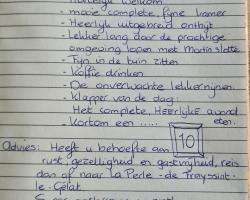 Hartelijk welkom
- mooie complete, fijne kamer
- Heerlijk uitgebreid ontbijt
- Lekker lang door de prachtige
omgeving lopen met Martin
- Fijn in de tuin zitten
- Koffie drinken
- De onverwachte lekkernijen
- Klapper van de dag:
Het complete, HEERLIJKE avond
eten.
- Kortom een ..... 10
Advies: Heeft u behoefte aan
rust, gezelligheid en gastvrijheid, reis
dan af naar La Perle - de Trayssint
- le - Gélat.